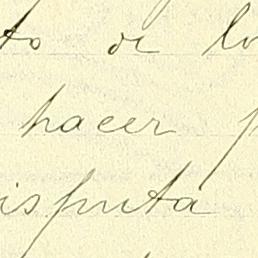 to de lo
hacer p
isputa